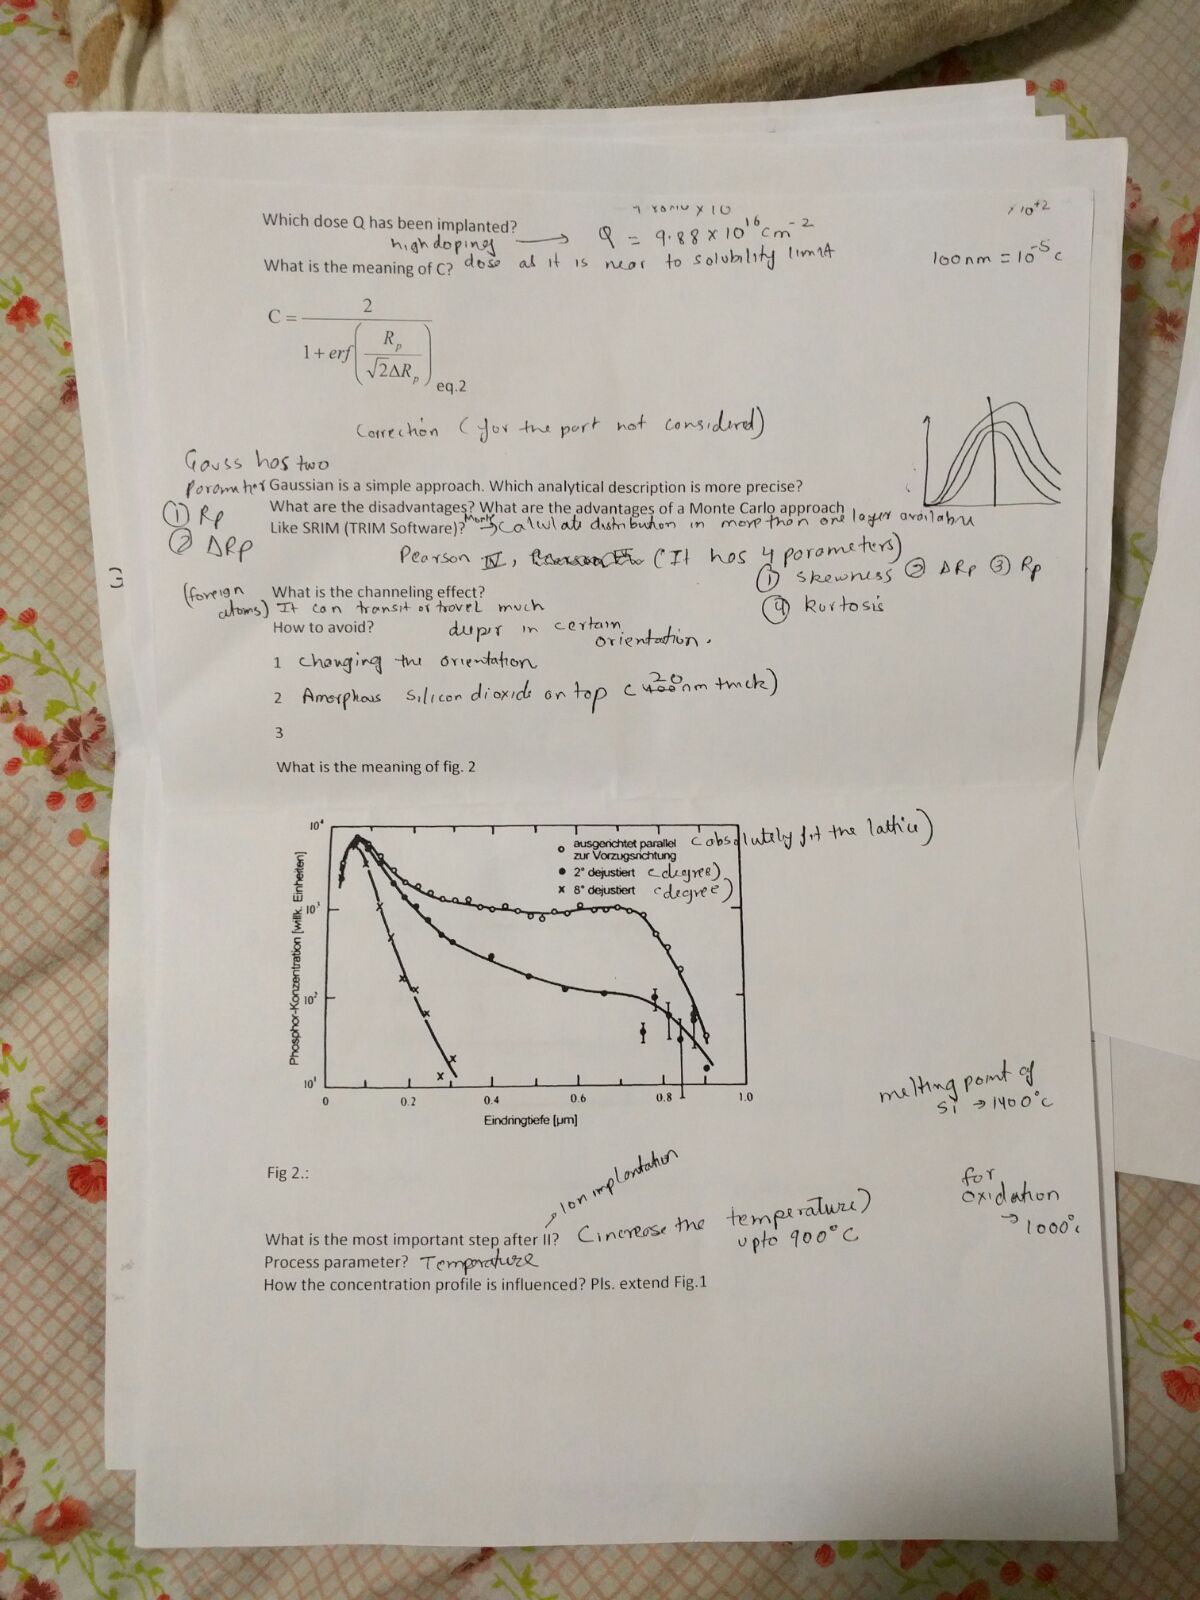 Which dose Q has been implanted?
high doping → Q = 9.88 × 10^16 cm^-2
× 10^+2
dose as it is near to solubility limit
What is the meaning of C?
100nm = 10^-5 c
C = 2 / (1 + erf(R_p / (√2ΔR_p)))
eq.2
Correction (for the part not considered)
Gauss has two
Parameter
① Rp
② ΔRp
Gaussian is a simple approach. Which analytical description is more precise?
What are the disadvantages? What are the advantages of a Monte Carlo approach
Like SRIM (TRIM Software)?
Monte → Calculate distribution in more than one layer available
Pearson IV, (It has 4 parameters)
① skewness ② ΔRp ③ Rp
④ kurtosis
3
What is the channeling effect?
(foreign atoms) It can transit or travel much
deeper in certain
orientation.
How to avoid?
1 changing the orientation
2 Amorphous silicon dioxide on top (20 nm thick)
3
What is the meaning of fig. 2
10^4
10^3
10^2
10^1
Phosphor-Konzentration [willk. Einheiten]
ausgerichtet parallel
zur Vorzugsrichtung
(absolutely fit the lattice)
2° dejustiert (degree)
8° dejustiert (degree)
0 0.2 0.4 0.6 0.8 1.0
Eindringtiefe [µm]
melting point of
si → 1400°c
Fig 2.:
Ion implantation
What is the most important step after II?
(increase the temperature)
upto 900°C
for
oxidation
→ 1000°c
Process parameter? Temperature
How the concentration profile is influenced? Pls. extend Fig.1